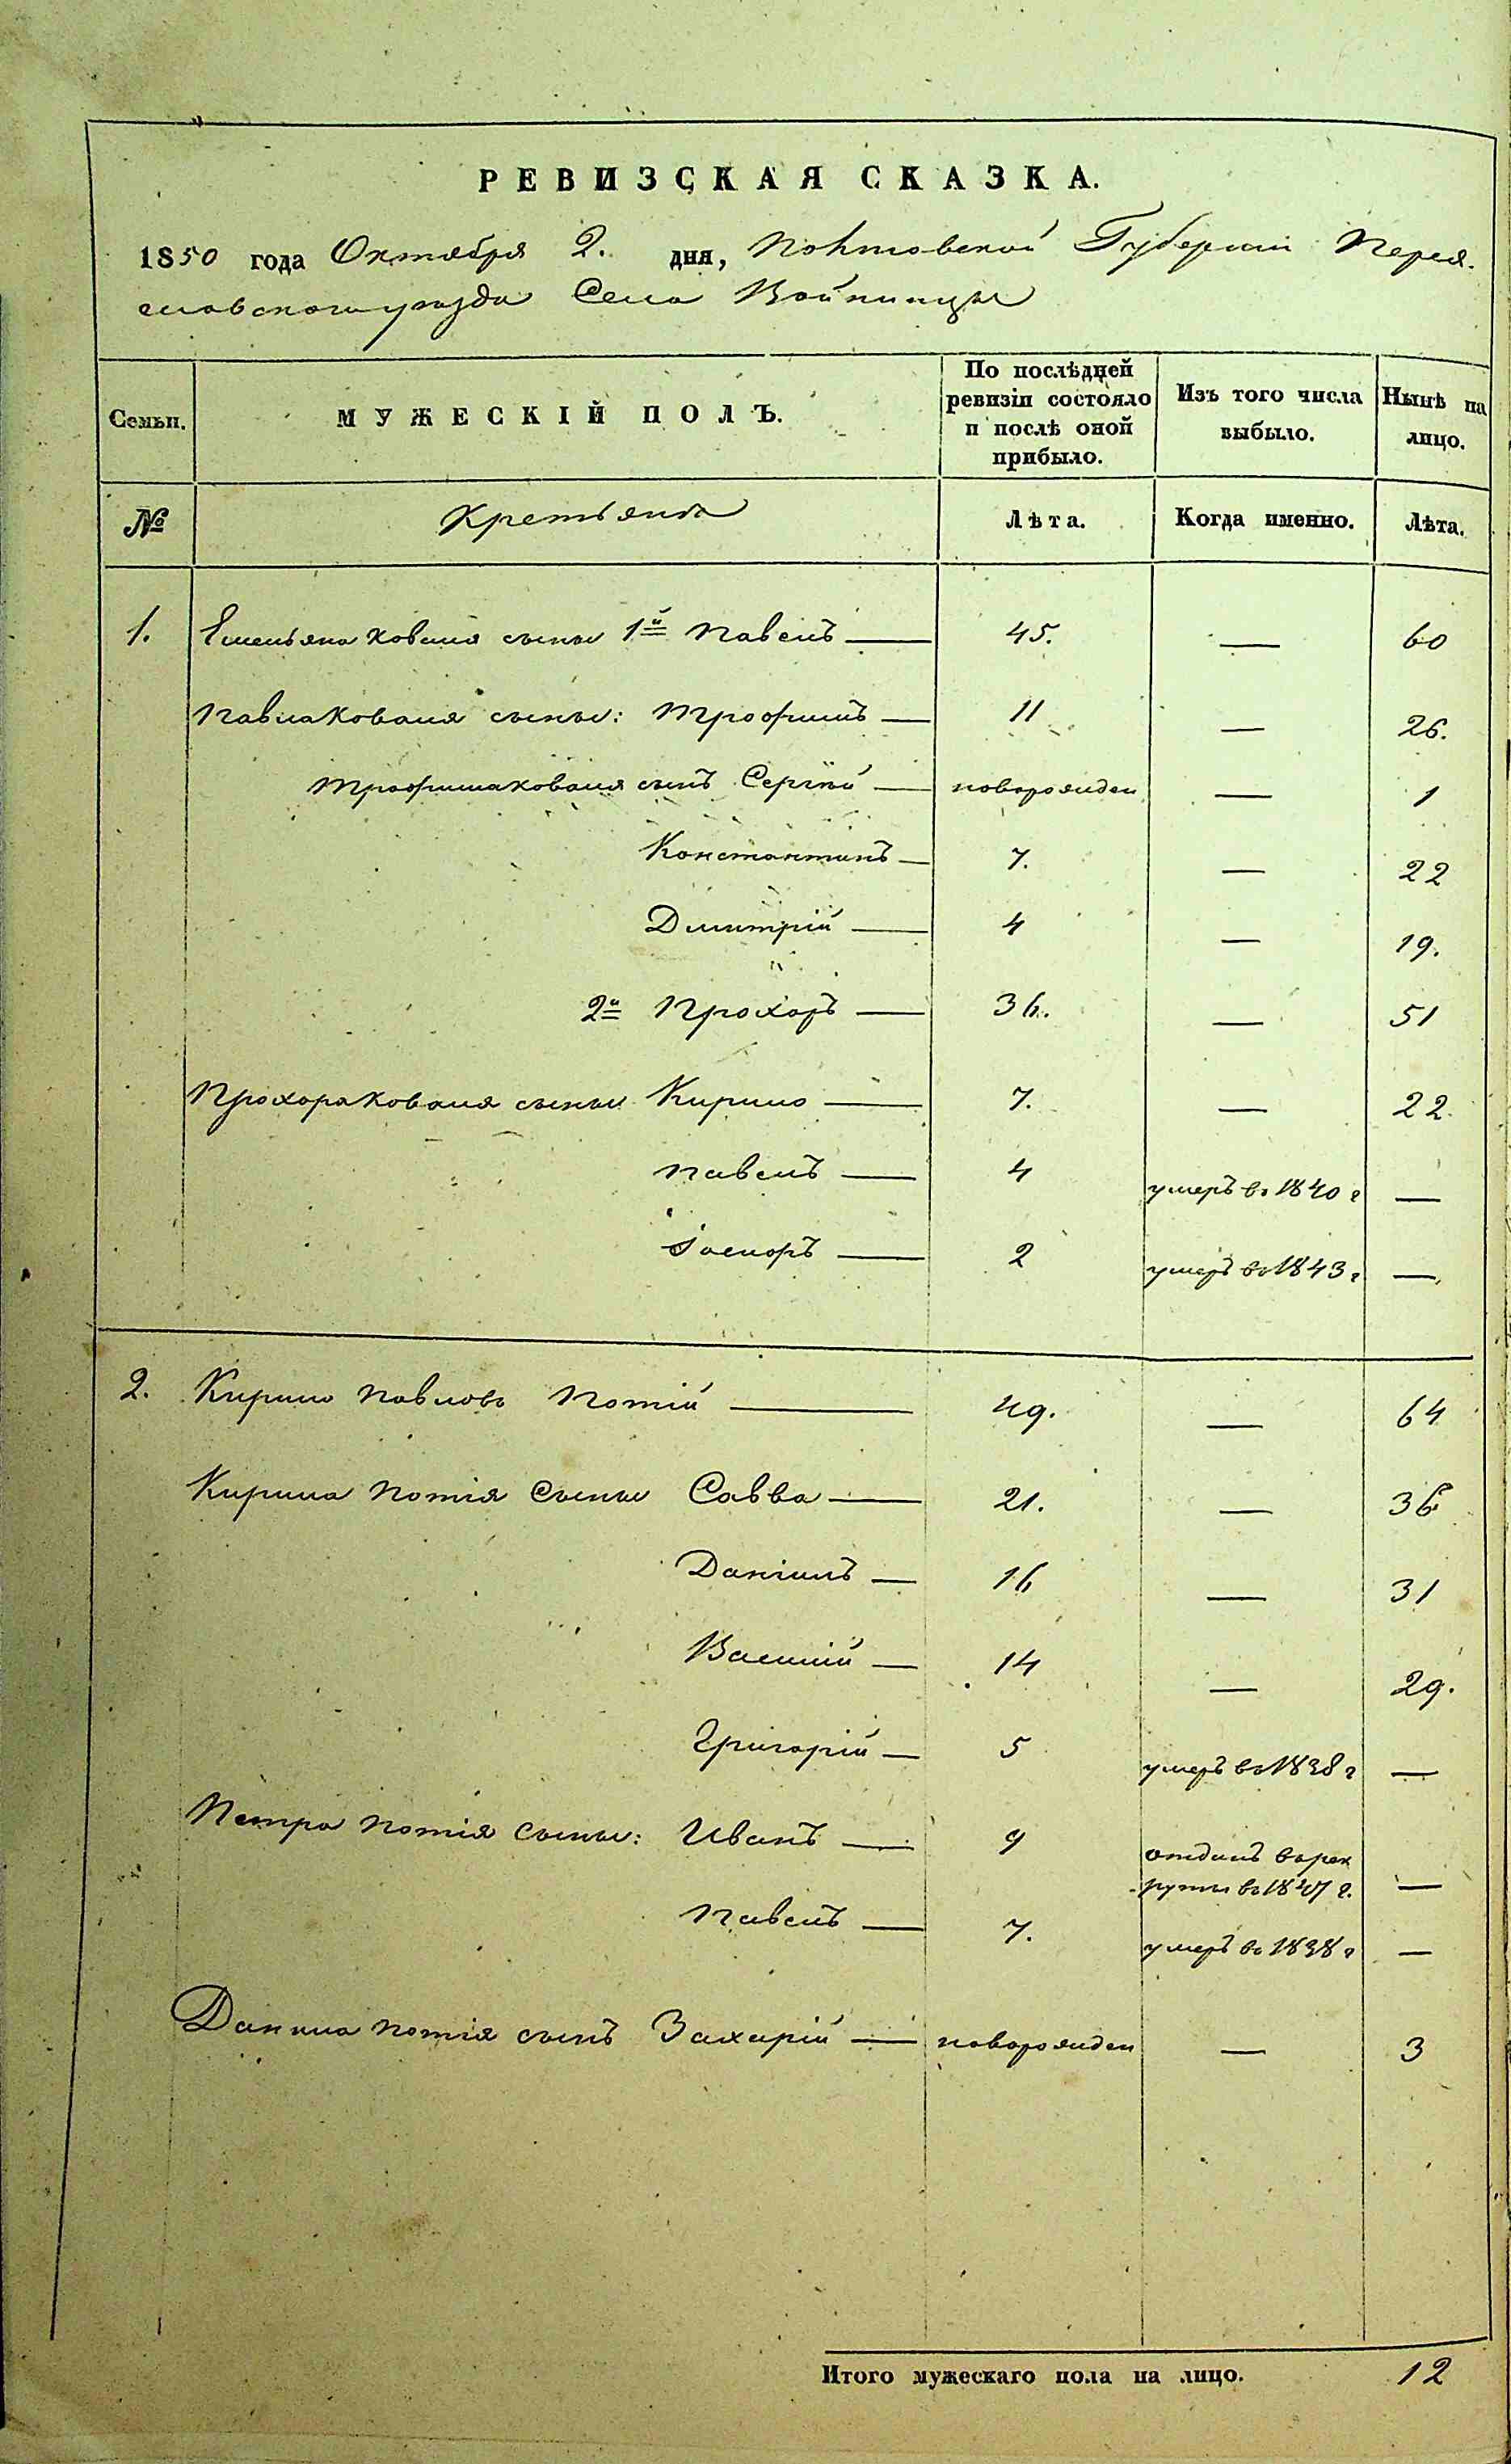 РЕВИЗСКАЯ СКАЗКА.
1850 года Октября 2. дня, Полтовской Губерніи Перея.
славского уезда Села Войтинцы
Семьи.
МУЖЕСКІЙ ПОЛЪ.
По послѣдней ревизіи состояло и послѣ оной прибыло.
Изъ того числа выбыло.
Нынѣ на лицо.
№ Крестьяна Лѣта. Когда именно. Лѣта.
1. Емельяна Коваля сыны 1й Павелъ — 45. — 60
Павла Коваля сыны: Трофимъ — 11 — 26.
Трофима Коваля сынъ Сергѣй — новорожден — 1
Константинъ — 7. — 22
Дмитрій — 4 — 19.
2й Прохоръ — 36. — 51
Прохора Коваля сыны Кирило — 7. — 22.
Павелъ — 4 умеръ въ 1840 г —
2 умеръ въ 1843 г —
2. Кирило Павловъ Потій — 49. — 64
Кирила Потія Сыны Савва — 21. — 36
Даніилъ — 16 — 31
Василій — 14 — 29.
Григорій — 5 умеръ въ 1838 г —
Петра Потія Сыны: Иванъ — 9 отданъ въ рек
руты въ 1847 г. —
Павелъ — 7. умеръ въ 1838 г —
Данила Потія сынъ Захарій — новорожден — 3
Итого мужескаго пола на лицо. 12